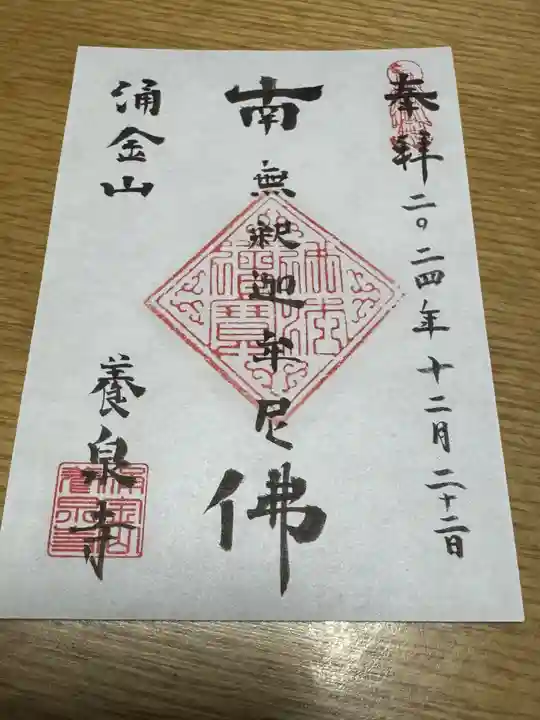 奉拜 二〇二四年 十二月 二十二日
南無釈迦牟尼佛
涌金山 養泉寺